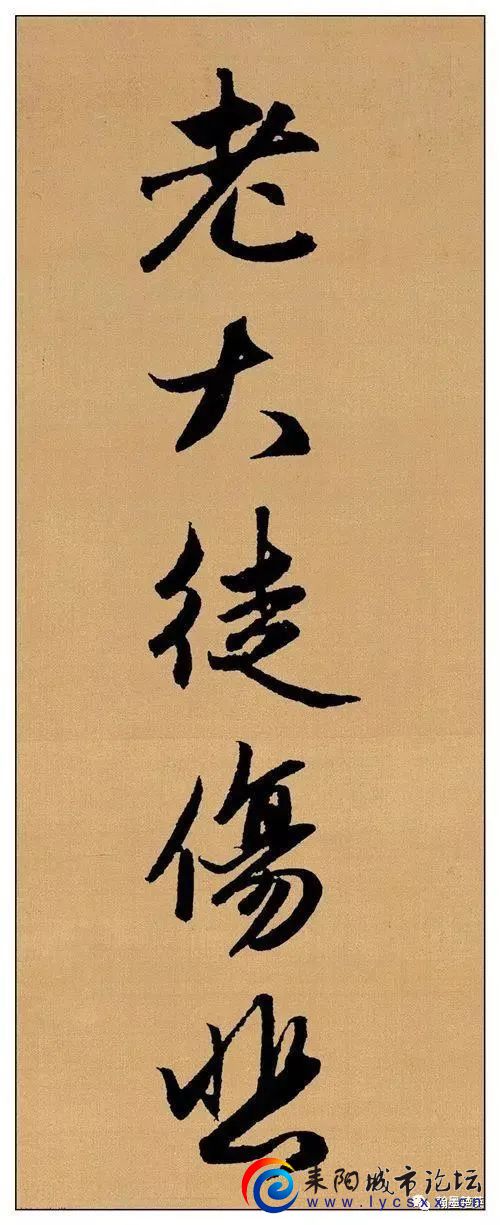 老大徒傷悲
耒阳城市论坛
www.lycsxx.com